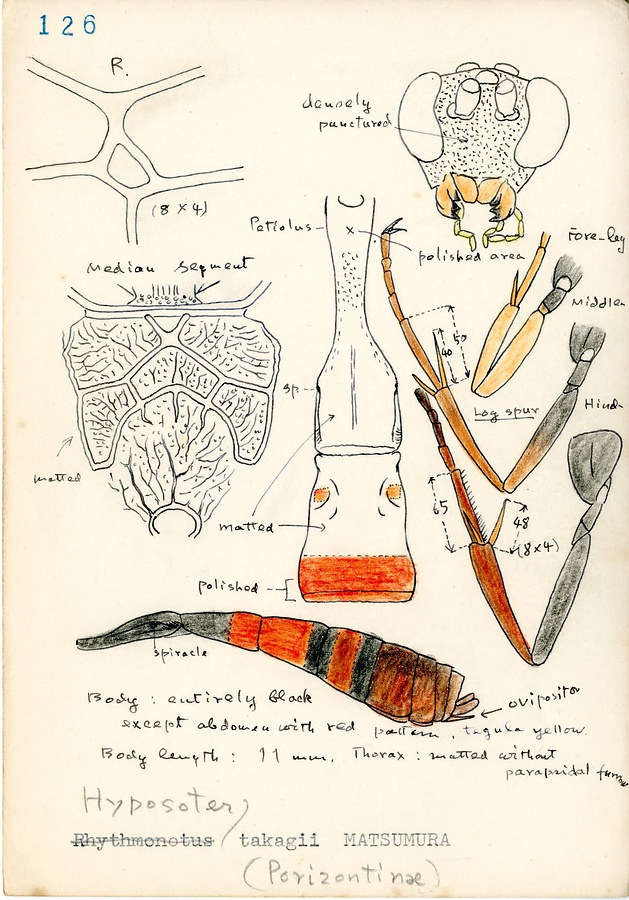 126
R.
(8 x 4)
densely
punctured
Petiolus
x
polished area
Fore-leg
Median Segment
Middle
50
40
sp.
Leg spur
Hind-
matted
matted
65
48
(8x4)
polished
spiracle
ovipositor
Body : entirely black
except abdomen with red pattern, tegula yellow.
Body length : 11 mm, Thorax : matted without
parapsidal furrow
Hyposoter
Rhythmonotus takagii MATSUMURA
(Porizontinae)